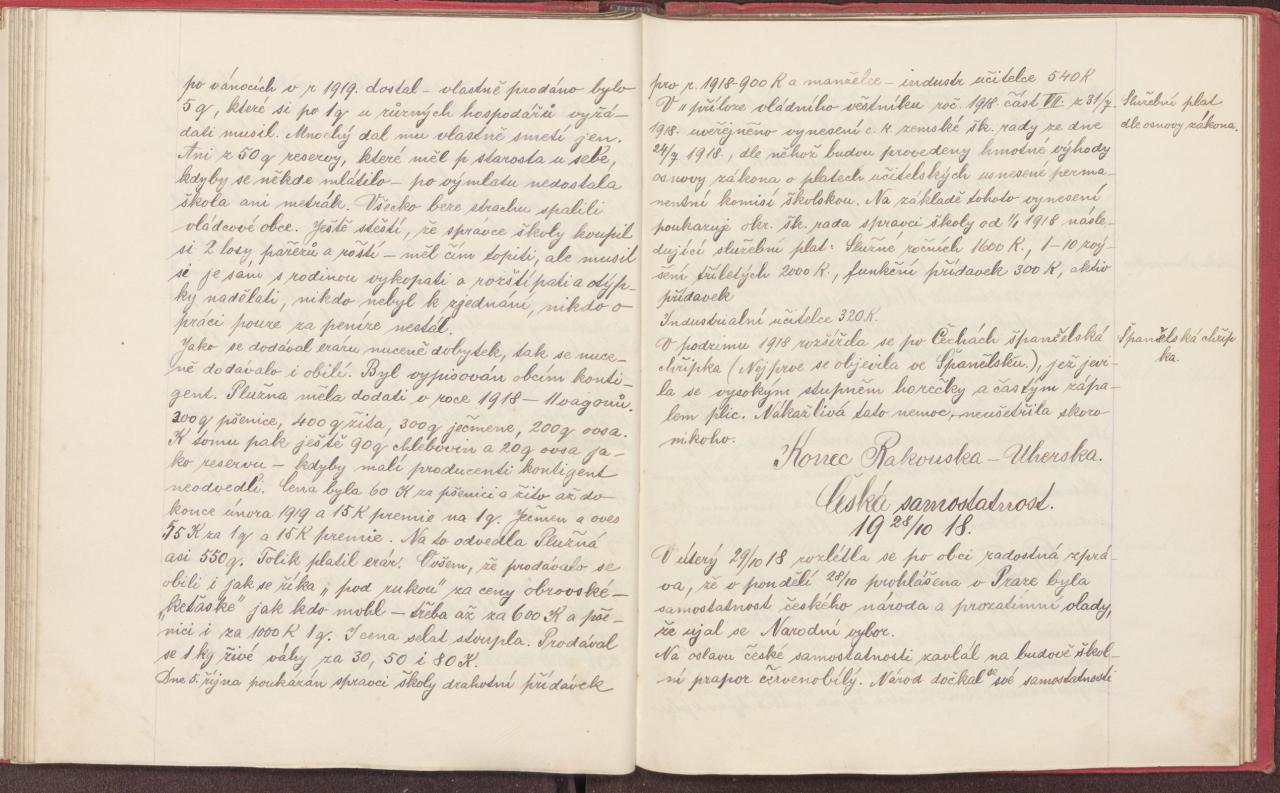 po vánocích v r 1919. dostal – vlastně prodáno bylo
5 q, které si po 1 q u různých hospodářů vyžá-
dati musil. Mnohý dal mu vlastně smetí jen.
Ani z 50 q reservy, které měl p starosta u sebe,
kdyby se někde mlátilo – po výmlatu nedostala
škola ani metrák. Všecko beze strachu spálili
vládcové obce. Ještě štěstí, že správce školy koupil
si 2 losy pařezů a roští – měl čím topiti, ale musil
si je sám s rodinou vykopati a rozštípati a otýp-
ky nadělati, nikdo nebyl k zjednání, nikdo o
práci pouze za peníze nestál.
Jako se dodával eráru nuceně dobytek, tak se nuce-
ně dodávalo i obilí. Byl vypisován obcím konti-
gent. Plužna měla dodati v roce 1918 – 11 vagonů.
300 q pšenice, 400 q žita, 300 q ječmene, 200 q ovsa.
K tomu pak ještě 90 q chlebovin a 20 q ovsa ja-
ko reservu – kdyby malí producenti kontigent
neodvedli. Cena byla 60 K za pšenici a žito až do
konce února 1919 a 15 K premie na 1 q. Ječmen a oves
55 K za 1 q a 15 K premie. Na to odvedla Plužná
asi 550 q. Tolik platil erár. Ovšem, že prodávalo se
obilí i jak se říká „pod rukou" za ceny obrovské –
„keťaské" jak kdo mohl – třeba až za 600 K a pše-
nici i za 1000 K 1 q. I cena selat stoupla. Prodával
se 1 kg živé váhy za 30, 50 i 80 K.
Dne 5. října poukázán správci školy drahotní přídavek
pro r. 1918 - 900 K a manželce – industr učitelce 540 K.
V „příloze vládního věstníku roč. 1918. část VII. z 31/7.
Služební plat
dle osnovy zákona.
1918. uveřejněno vynesení c. k. zemské šk. rady ze dne
24/7 1918., dle něhož budou provedeny hmotné výhody
osnovy zákona o platech učitelských usnesené perma-
nentní komisí školskou. Na základě tohoto vynesení
poukazuje okr. šk. rada správci školy od 1/1 1918 násle-
dující služební plat: Služné ročních 1600 K., 1–10 zvý-
šení tříletých 2000 K., funkční přídavek 300 K, aktiv
přídavek
Industrialní učitelce 320 K.
V podzimu 1918 rozšířila se po Čechách španělská
Španělská chřip
ka.
chřipka (Nejprve se objevila ve Španělsku.), jež jevi-
la se vysokým stupněm horečky a častým zápa-
lem plic. Nákažlivá tato nemoc, neušetřila skoro
nikoho.
Konec Rakouska – Uherska.
Česká samostatnost.
19 28/10 18.
V úterý 29/10 18 rozlétla se po obci radostná zprá-
va, že v pondělí 28/10 prohlášena v Praze byla
samostatnost českého národa a prozatímní vlady,
že ujal se Narodní vybor.
Na oslavu české samostatnosti zavlál na budově škol-
ní prapor červenobílý. Národ dočkal se své samostatnosti